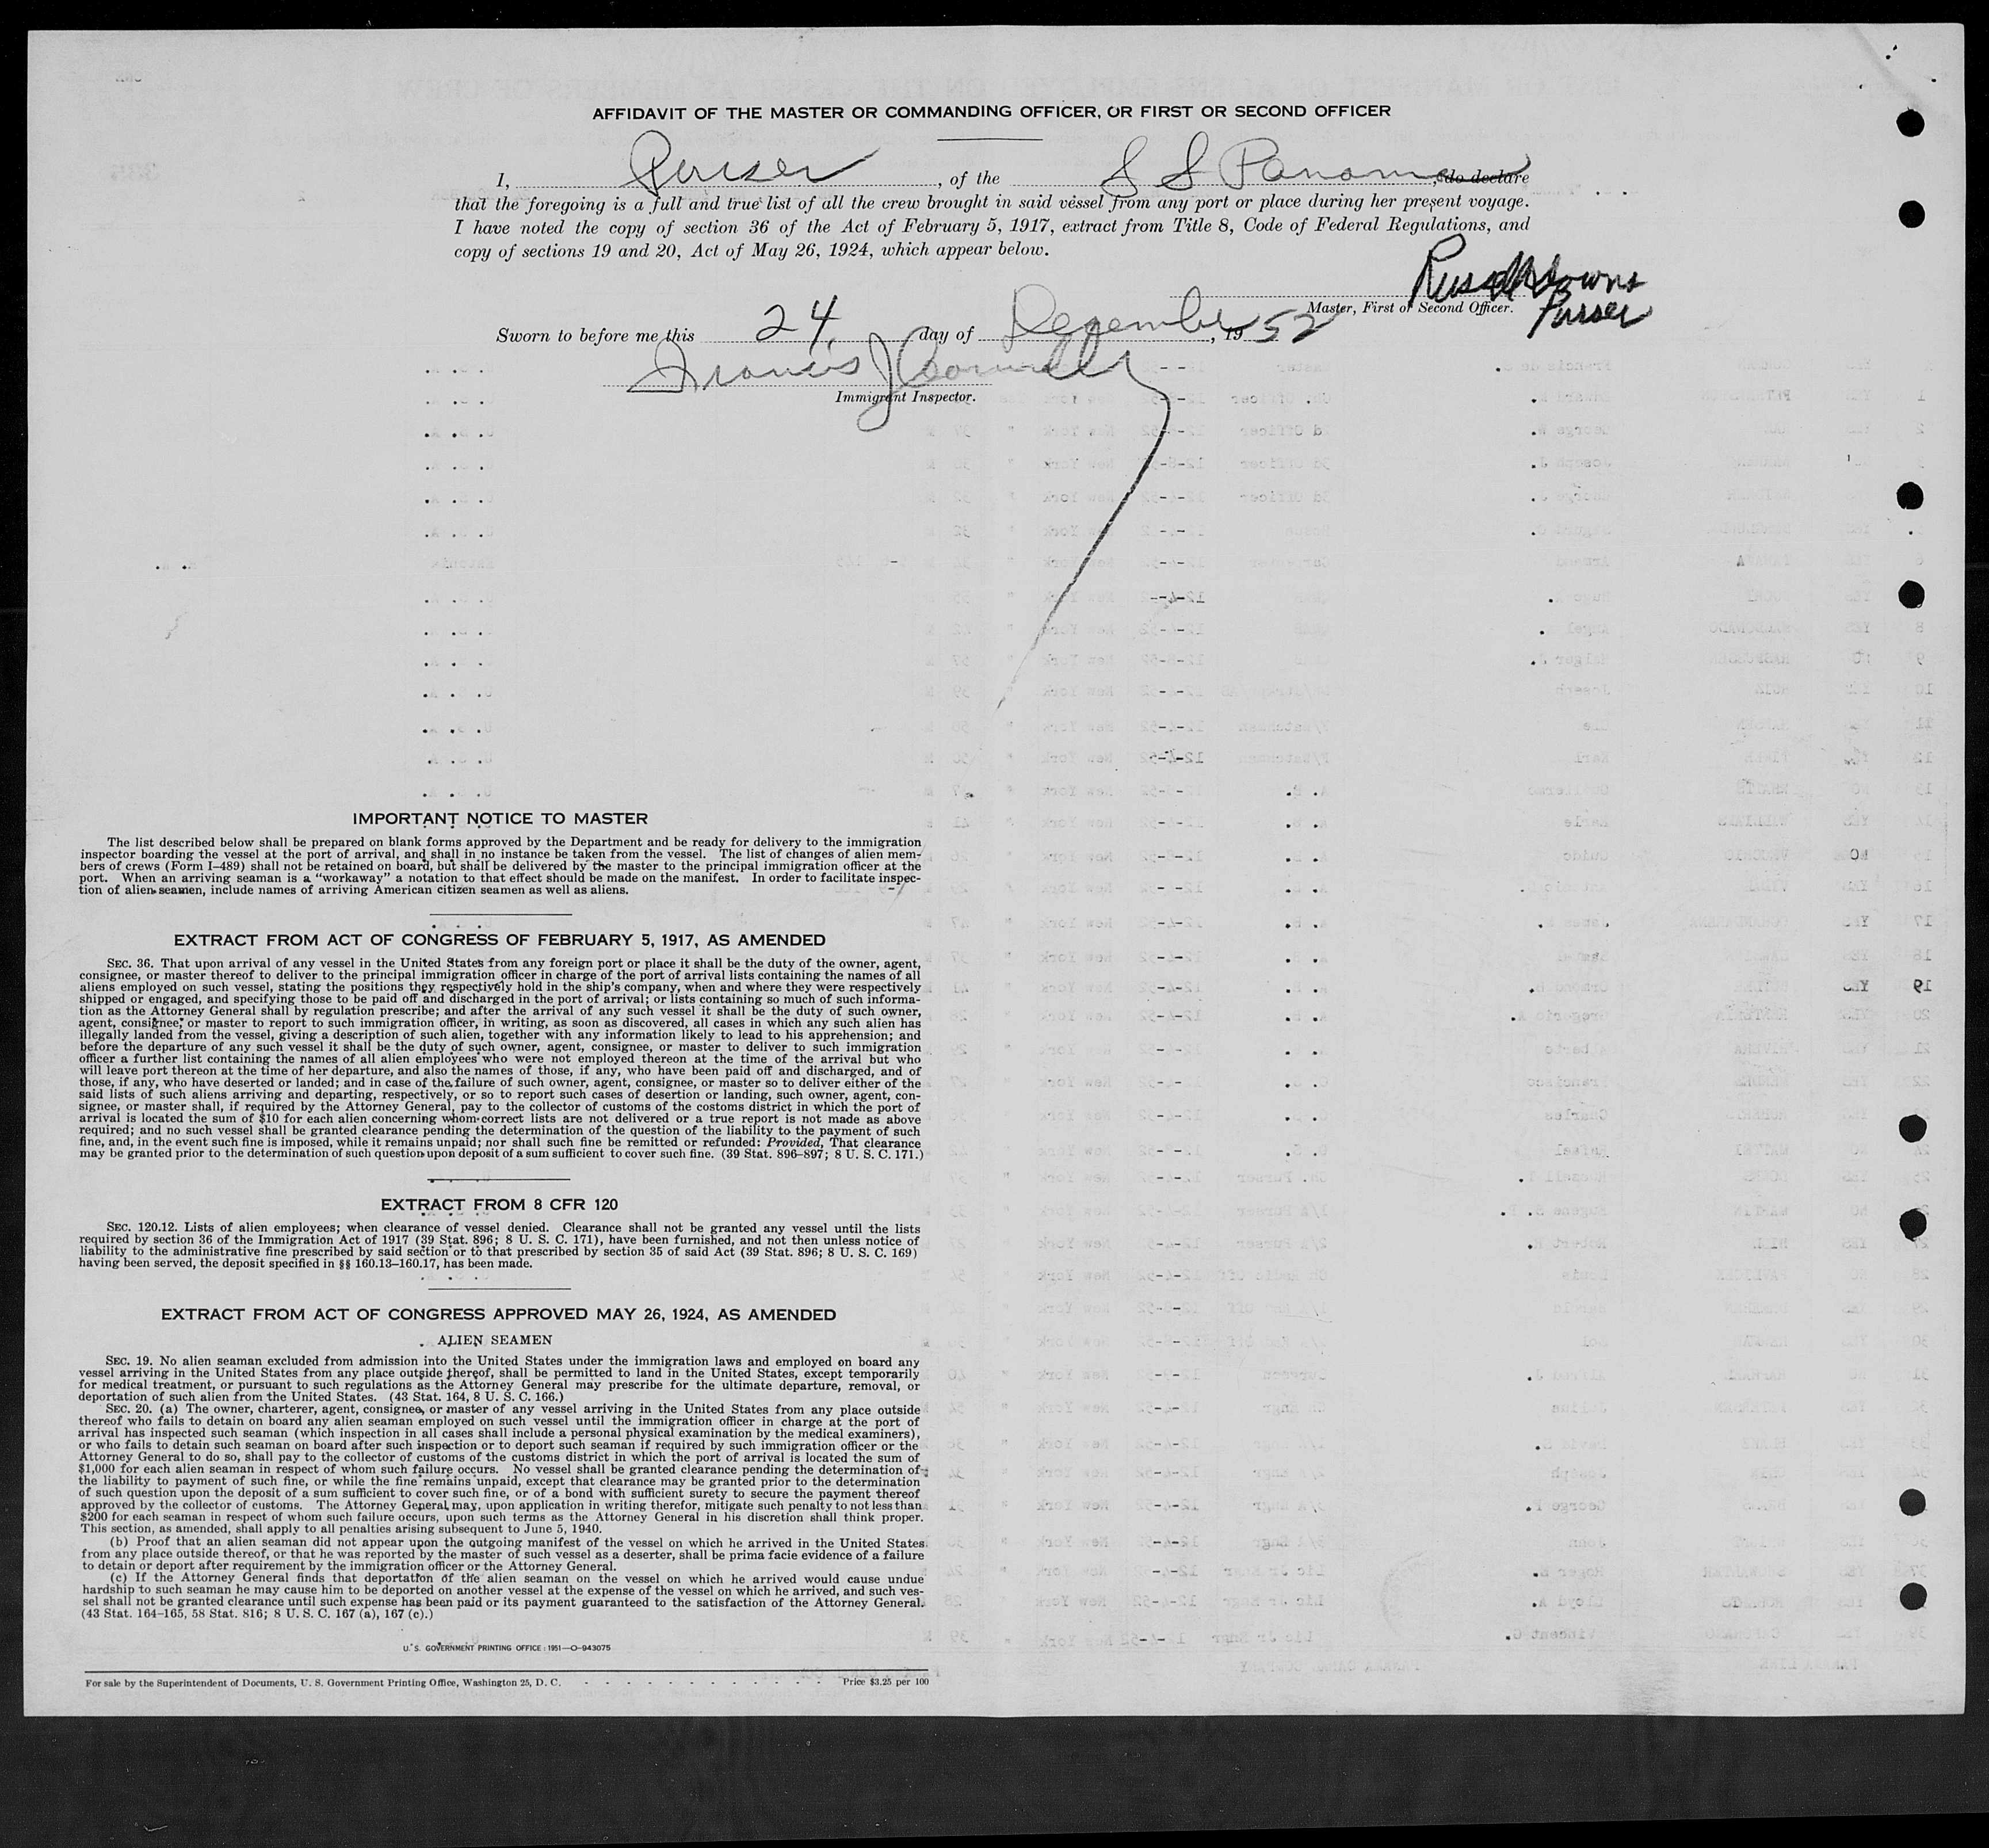 AFFIDAVIT OF THE MASTER OR COMMANDING OFFICER, OR FIRST OR SECOND OFFICER
I, Purser, of the S S Panama, do declare
that the foregoing is a full and true list of all the crew brought in said vessel from any port or place during her present voyage.
I have noted the copy of section 36 of the Act of February 5, 1917, extract from Title 8, Code of Federal Regulations, and
copy of sections 19 and 20, Act of May 26, 1924, which appear below.
Downs
Master, First or Second Officer. Purser
Sworn to before me this 24 day of December, 1952
Francis J Connelly
Immigrant Inspector.
IMPORTANT NOTICE TO MASTER
The list described below shall be prepared on blank forms approved by the Department and be ready for delivery to the immigration
inspector boarding the vessel at the port of arrival, and shall in no instance be taken from the vessel. The list of changes of alien mem-
bers of crews (Form I–489) shall not be retained on board, but shall be delivered by the master to the principal immigration officer at the
port. When an arriving seaman is a “workaway” a notation to that effect should be made on the manifest. In order to facilitate inspec-
tion of alien seamen, include names of arriving American citizen seamen as well as aliens.
EXTRACT FROM ACT OF CONGRESS OF FEBRUARY 5, 1917, AS AMENDED
SEC. 36. That upon arrival of any vessel in the United States from any foreign port or place it shall be the duty of the owner, agent,
consignee, or master thereof to deliver to the principal immigration officer in charge of the port of arrival lists containing the names of all
aliens employed on such vessel, stating the positions they respectively hold in the ship's company, when and where they were respectively
shipped or engaged, and specifying those to be paid off and discharged in the port of arrival; or lists containing so much of such informa-
tion as the Attorney General shall by regulation prescribe; and after the arrival of any such vessel it shall be the duty of such owner,
agent, consignee, or master to report to such immigration officer, in writing, as soon as discovered, all cases in which any such alien has
illegally landed from the vessel, giving a description of such alien, together with any information likely to lead to his apprehension; and
before the departure of any such vessel it shall be the duty of such owner, agent, consignee, or master to deliver to such immigration
officer a further list containing the names of all alien employees who were not employed thereon at the time of the arrival but who
will leave port thereon at the time of her departure, and also the names of those, if any, who have been paid off and discharged, and of
those, if any, who have deserted or landed; and in case of the failure of such owner, agent, consignee, or master so to deliver either of the
said lists of such aliens arriving and departing, respectively, or so to report such cases of desertion or landing, such owner, agent, con-
signee, or master shall, if required by the Attorney General, pay to the collector of customs of the costoms district in which the port of
arrival is located the sum of $10 for each alien concerning whom correct lists are not delivered or a true report is not made as above
required; and no such vessel shall be granted clearance pending the determination of the question of the liability to the payment of such
fine, and, in the event such fine is imposed, while it remains unpaid; nor shall such fine be remitted or refunded: Provided, That clearance
may be granted prior to the determination of such question upon deposit of a sum sufficient to cover such fine. (39 Stat. 896–897; 8 U. S. C. 171.)
EXTRACT FROM 8 CFR 120
SEC. 120.12. Lists of alien employees; when clearance of vessel denied. Clearance shall not be granted any vessel until the lists
required by section 36 of the Immigration Act of 1917 (39 Stat. 896; 8 U. S. C. 171), have been furnished, and not then unless notice of
liability to the administrative fine prescribed by said section or to that prescribed by section 35 of said Act (39 Stat. 896; 8 U. S. C. 169)
having been served, the deposit specified in §§ 160.13–160.17, has been made.
EXTRACT FROM ACT OF CONGRESS APPROVED MAY 26, 1924, AS AMENDED
ALIEN SEAMEN
SEC. 19. No alien seaman excluded from admission into the United States under the immigration laws and employed on board any
vessel arriving in the United States from any place outside thereof, shall be permitted to land in the United States, except temporarily
for medical treatment, or pursuant to such regulations as the Attorney General may prescribe for the ultimate departure, removal, or
deportation of such alien from the United States. (43 Stat. 164, 8 U. S. C. 166.)
SEC. 20. (a) The owner, charterer, agent, consignee, or master of any vessel arriving in the United States from any place outside
thereof who fails to detain on board any alien seaman employed on such vessel until the immigration officer in charge at the port of
arrival has inspected such seaman (which inspection in all cases shall include a personal physical examination by the medical examiners),
or who fails to detain such seaman on board after such inspection or to deport such seaman if required by such immigration officer or the
Attorney General to do so, shall pay to the collector of customs of the customs district in which the port of arrival is located the sum of
$1,000 for each alien seaman in respect of whom such failure occurs. No vessel shall be granted clearance pending the determination of
the liability to payment of such fine, or while the fine remains unpaid, except that clearance may be granted prior to the determination
of such question upon the deposit of a sum sufficient to cover such fine, or of a bond with sufficient surety to secure the payment thereof
approved by the collector of customs. The Attorney General may, upon application in writing therefor, mitigate such penalty to not less than
$200 for each seaman in respect of whom such failure occurs, upon such terms as the Attorney General in his discretion shall think proper.
This section, as amended, shall apply to all penalties arising subsequent to June 5, 1940.
(b) Proof that an alien seaman did not appear upon the outgoing manifest of the vessel on which he arrived in the United States
from any place outside thereof, or that he was reported by the master of such vessel as a deserter, shall be prima facie evidence of a failure
to detain or deport after requirement by the immigration officer or the Attorney General.
(c) If the Attorney General finds that deportation of the alien seaman on the vessel on which he arrived would cause undue
hardship to such seaman he may cause him to be deported on another vessel at the expense of the vessel on which he arrived, and such ves-
sel shall not be granted clearance until such expense has been paid or its payment guaranteed to the satisfaction of the Attorney General.
(43 Stat. 164–165, 58 Stat. 816; 8 U. S. C. 167 (a), 167 (c).)
U. S. GOVERNMENT PRINTING OFFICE : 1951—O–943075
For sale by the Superintendent of Documents, U. S. Government Printing Office, Washington 25, D. C. - - - - - - - - - - - Price $3.25 per 100